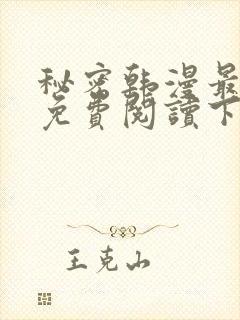 秘密韩漫最
免費閱讀下
王克山